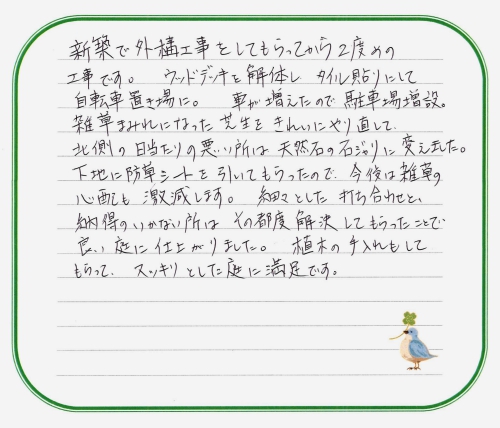 新築で外構工事をしてもらってから2度めの
工事です。 ウッドデッキを解体し タイル貼りにして
自転車置き場に。 車が増えたので駐車場増設。
雑草まみれになった芝生をきれいにやり直して、
北側の日当たりの悪い所は天然石の石じゃりに変えました。
下地に防草シートを引いてもらったので、今後は雑草の
心配も激減します。 細々とした打ち合わせと、
納得のいかない所はその都度解決してもらったことで
良い庭に仕上がりました。 植木の手入れもして
もらって、スッキリとした庭に満足です。